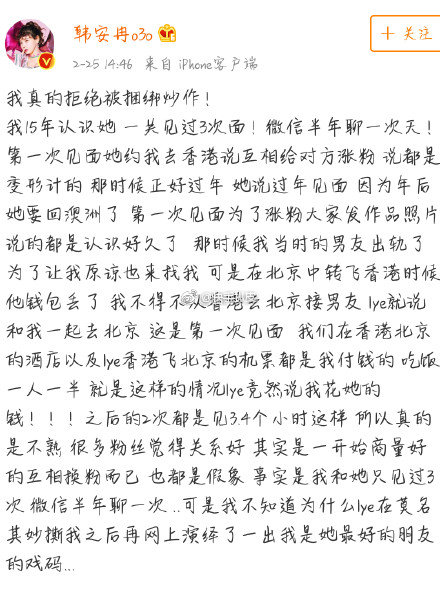 韩安冉030
+ 关注
2-25 14:46 来自 iPhone客户端
我真的拒绝被捆绑炒作！
我15年认识她 一共见过3次面！微信半年聊一次天！
第一次见面她约我去香港说互相给对方涨粉 说都是
变形计的 那时候正好过年 她说过年见面 因为年后
她要回澳洲了 第一次见面为了涨粉大家发作品照片
说的都是认识好久了 那时候我当时的男友出轨了
为了让我原谅也来找我 可是在北京中转飞香港时候
他钱包丢了 我不得不从香港去北京接男友 lye就说
和我一起去北京 这是第一次见面 我们在香港北京
的酒店以及lye香港飞北京的机票都是我付钱的 吃饭
一人一半 就是这样的情况lye竟然说我花她的
钱！！！之后的2次都是见3.4个小时这样 所以真的
是不熟 很多粉丝觉得关系好 其实是一开始商量好
的互相换粉而已 也都是假象 事实是我和她只见过3
次 微信半年聊一次..可是我不知道为什么lye在莫名
其妙撕我之后再网上演绎了一出我是她最好的朋友
的戏码...